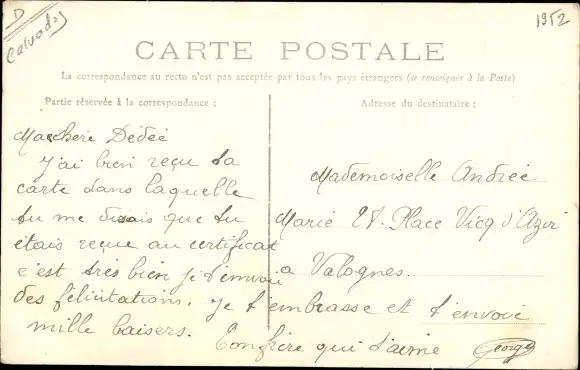 D
Calvados
1952
CARTE POSTALE
La correspondance au recto n'est pas acceptée par tous les pays étrangers (se renseigner à la Poste)
Partie réservée à la correspondance :
Ma chere Dédée
J'ai bien reçu ta
carte dans laquelle
tu me disais que tu
étais reçue au certificat
c'est très bien je t'envoi
des félicitations. je t'embrasse et t'envoie
mille baisers. Ton frere qui t'aime Georges
Adresse du destinataire :
Mademoiselle Andrée
Marie 27. Place Vicq d'Azir
a Valognes.